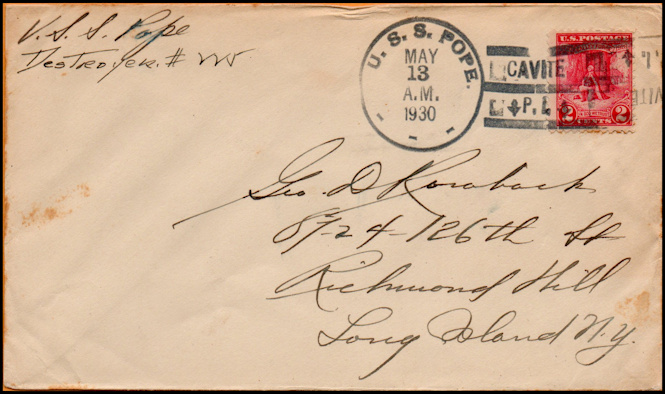 U.S.S. Pope
Destroyer #
U. S. S. POPE.
MAY
13
A.M.
1930
CAVITE
P. I.
U.S. POSTAGE
2 CENTS 2
Geo. D. Roraback
87-24-126th St
Richmond Hill
Long Island N.Y.